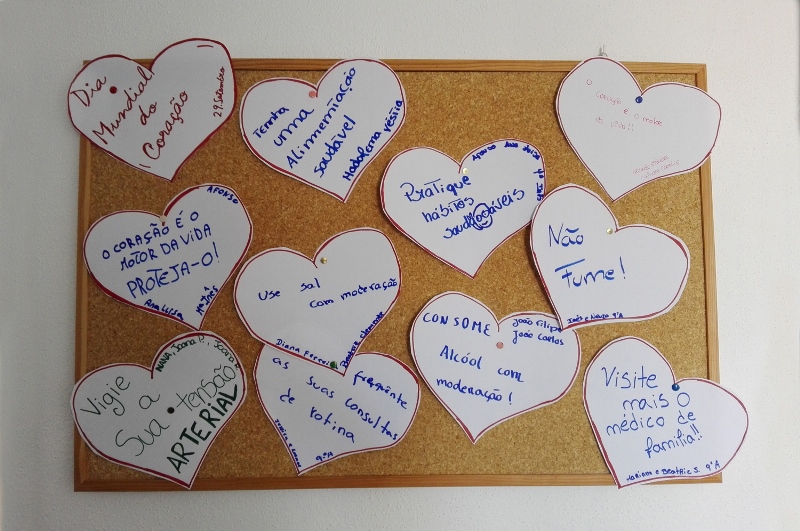 Dia
Mundial
do
Coração
29. Setembro
Tenha
uma
Alinmemtação
saudável
Madalema
O
coração é o motor
da vida!!
Pratique
hábitos
saudáveis
AFONSO
O CORAÇÃO É O
MOTOR DA VIDA
PROTEJA-O!
Ana Luísa
Mª Inês
Não
Fume!
Inês e 9ºA
Use sal
com moderação
Diana Ferreira
Beatriz Clemente
CONSOME
João Filipe
João Carlos
Alcoól com
moderação!
Joana P., Joana R.
Vigie
a
Sua tensão
ARTERIAL
frequente
as suas consultas
de rotina
9ºA
Visite
mais o
médico de
família!!
Mariana e Beatriz S. 9ºA